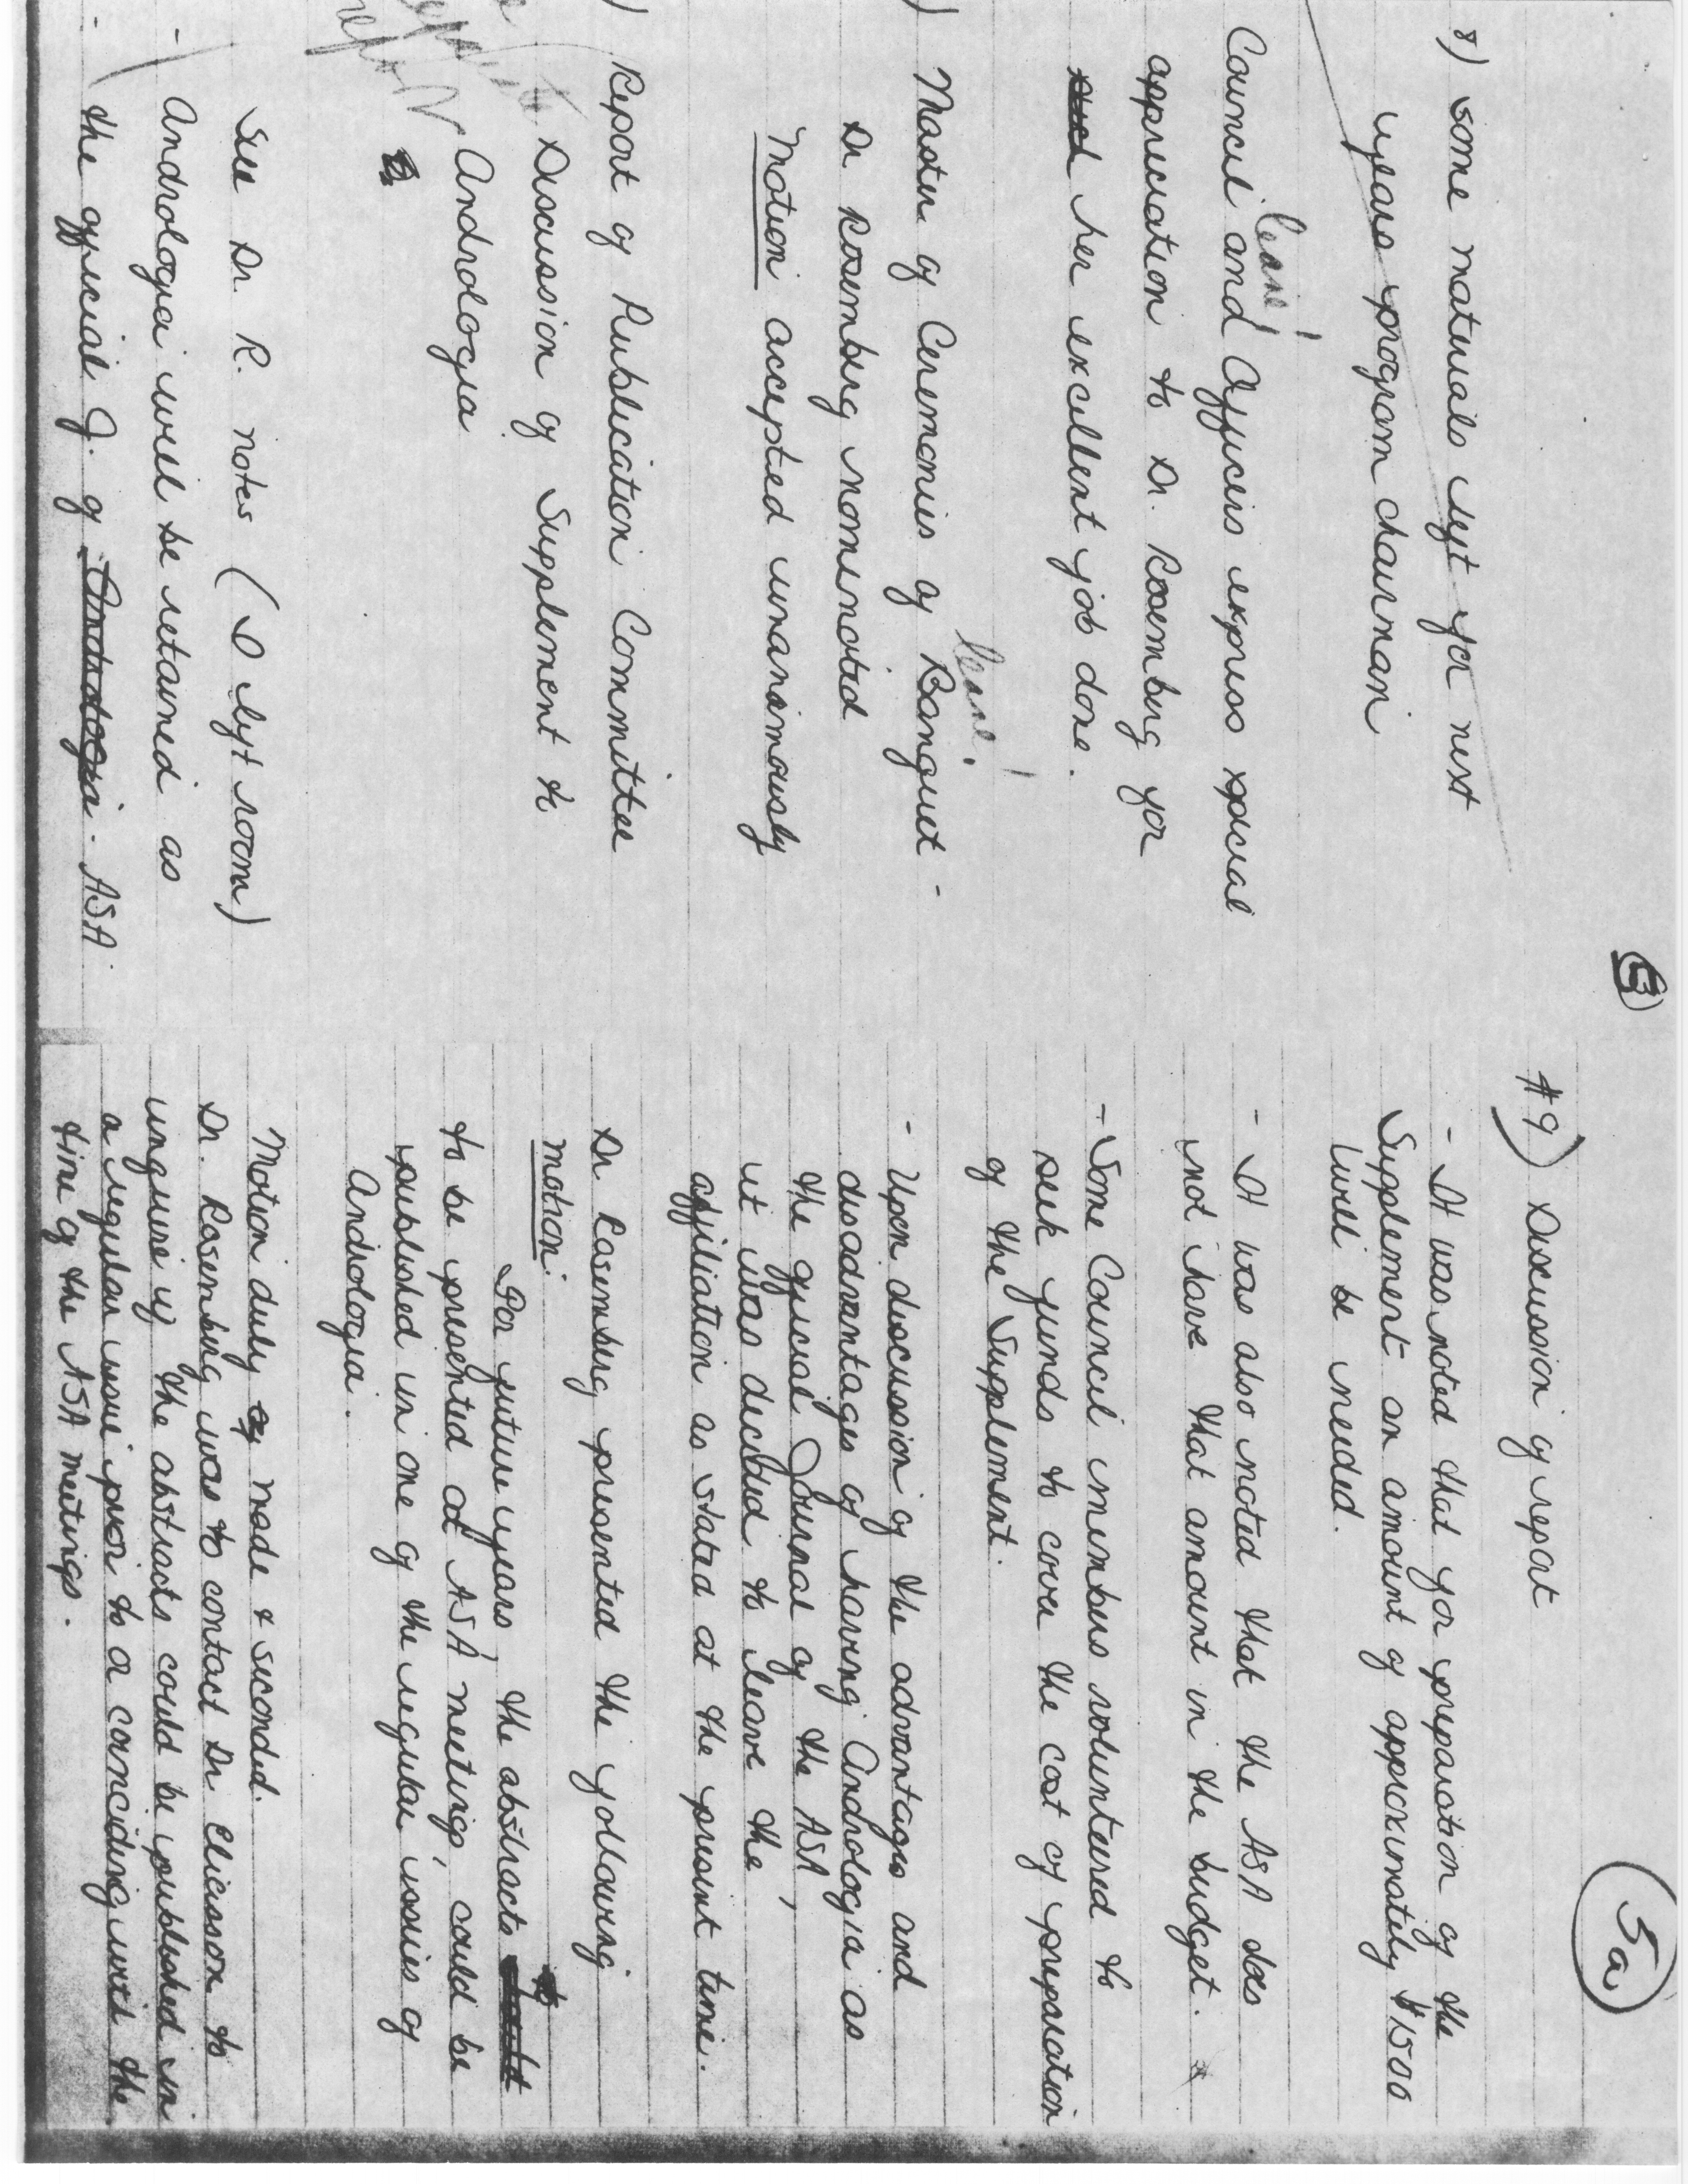 5
8) Some materials left for next
years program chairman
leave!
Council and Officers express special
appreciation to Dr. Rosemberg for
her excellent job done.
leave!
) Master of Ceremonies of Banquet -
Dr Rosemberg nominated
Motion accepted unanimously
) Report of Publication Committee
Discussion of Supplement to
Andrologia
See Dr. R. notes (I left room)
- Andrologia will be retained as
the official J. of Andrologia. ASA.
5a
#9) Discussion of report
- It was noted that for preparation of the
Supplement an amount of approximately $1500
will be needed.
- It was also noted that the ASA does
not have that amount in the budget.
- Some Council members volunteered to
seek funds to cover the cost of preparation
of the Supplement.
- Upon discussion of the advantages and
disadvantages of having Andrologia as
the official Journal of the ASA,
it was decided to leave the
affiliation as stated at the present time.
Dr Rosemberg presented the following
motion:
For future years, the abstracts
to be presented at ASA meetings, could be
published in one of the regular issues of
Andrologia.
Motion duly made & seconded.
Dr. Rosemberg was to contact Dr Eliasson to
inquire if the abstracts could be published in
a regular issue prior to or coinciding with the
time of the ASA meetings.